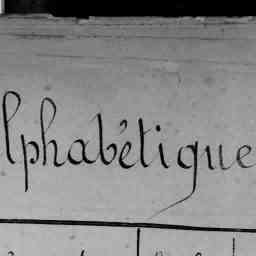 lphabétique